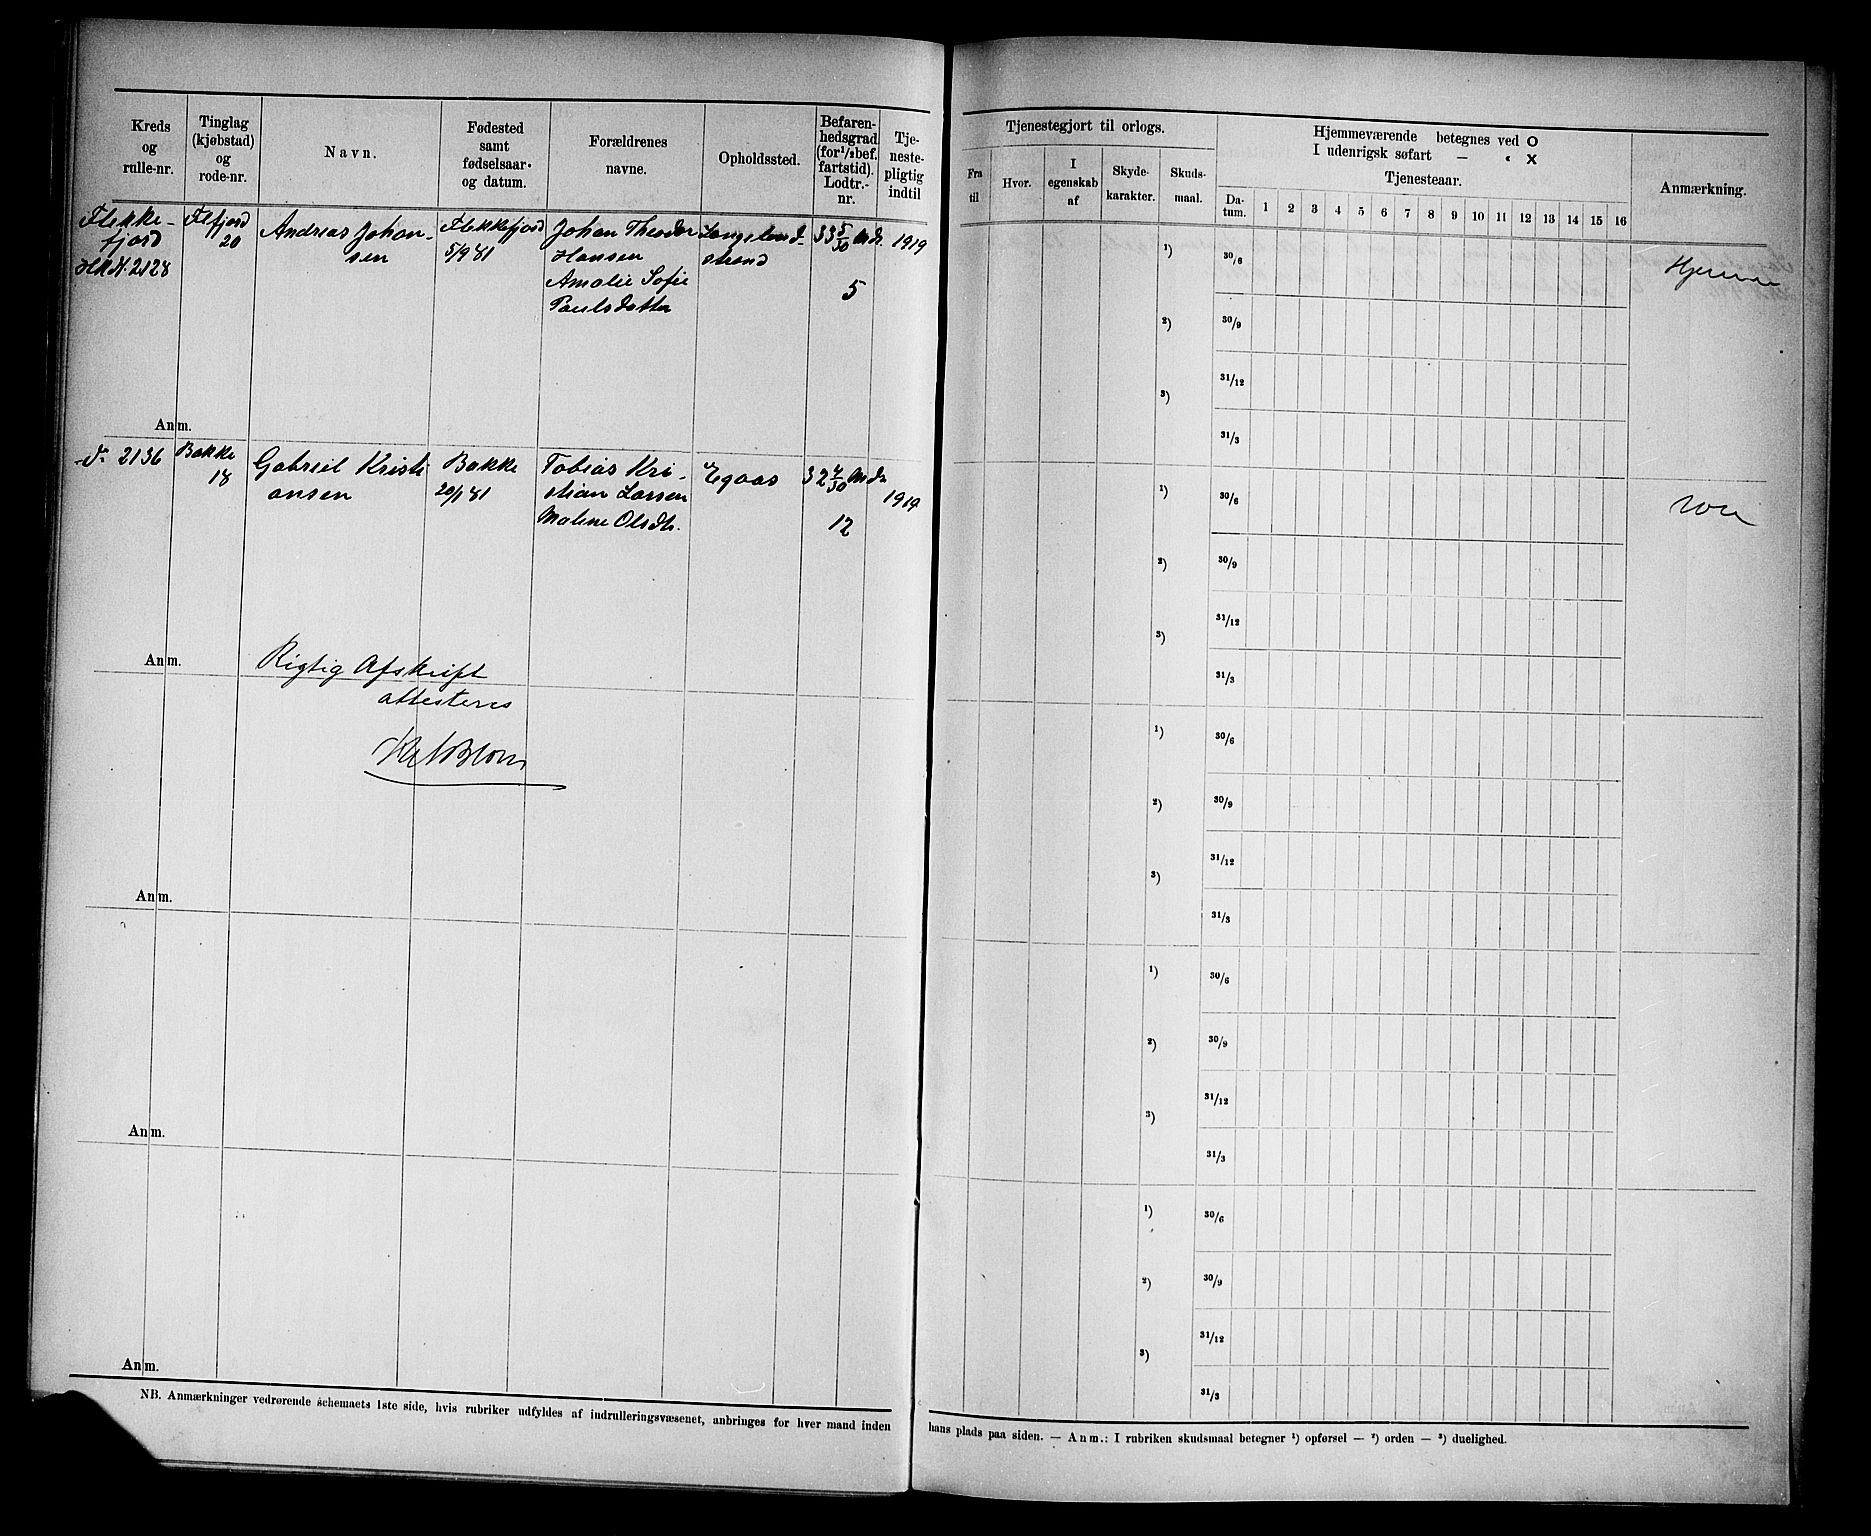 Kreds og rulle-nr.
Tinglag (kjøbstad) og rode-nr.
Navn.
Fødested samt fødselsaar- og datum.
Forældrenes navne.
Opholdssted.
Befaren-hedsgrad (for 1/2 bef. fartstid). Lodtr.-nr.
Tje-neste-pligtig indtil
Tjenestegjort til orlogs.
Fra til
Hvor.
I egenskab af
Skyde-karakter.
Skuds-maal.
Hjemmeværende betegnes ved O
I udenrigsk søfart — " X
Tjenesteaar.
Da-tum. 1 2 3 4 5 6 7 8 9 10 11 12 13 14 15 16
Anmærkning.
Flekke-
fjord
2128
Flfjord
20
Andreas Johan-
sen
Flekkefjord
5/9 81
Johan Theodor
Hansen
Amalie Sofie
Paulsdatter
strand
33 5/30 Mdr
5
1919
1) 30/6
2) 30/9
31/12
3)
31/3
Hjemme
Anm.
2136
Bakke
18
Gabriel Kristi
ansen
Bakke
20/1 81
Tobias Kri-
stian Larsen
Malene Olsdtr.
Egaas
32 4/30 Mdr
12
1919
1) 30/6
2) 30/9
31/12
3)
31/3
Anm.
Rigtig Afskrift
attesteres
1) 30/6
2) 30/9
31/12
3)
31/3
Anm.
1) 30/6
2) 30/9
31/12
3)
31/3
Anm.
1) 30/6
2) 30/9
31/12
3)
31/3
Anm.
NB. Anmærkninger vedrørende schemaets 1ste side, hvis rubriker udfyldes af indrulleringsvæsenet, anbringes for hver mand inden
hans plads paa siden. — Anm.: I rubriken skudsmaal betegner 1) opførsel — 2) orden — 3) duelighed.